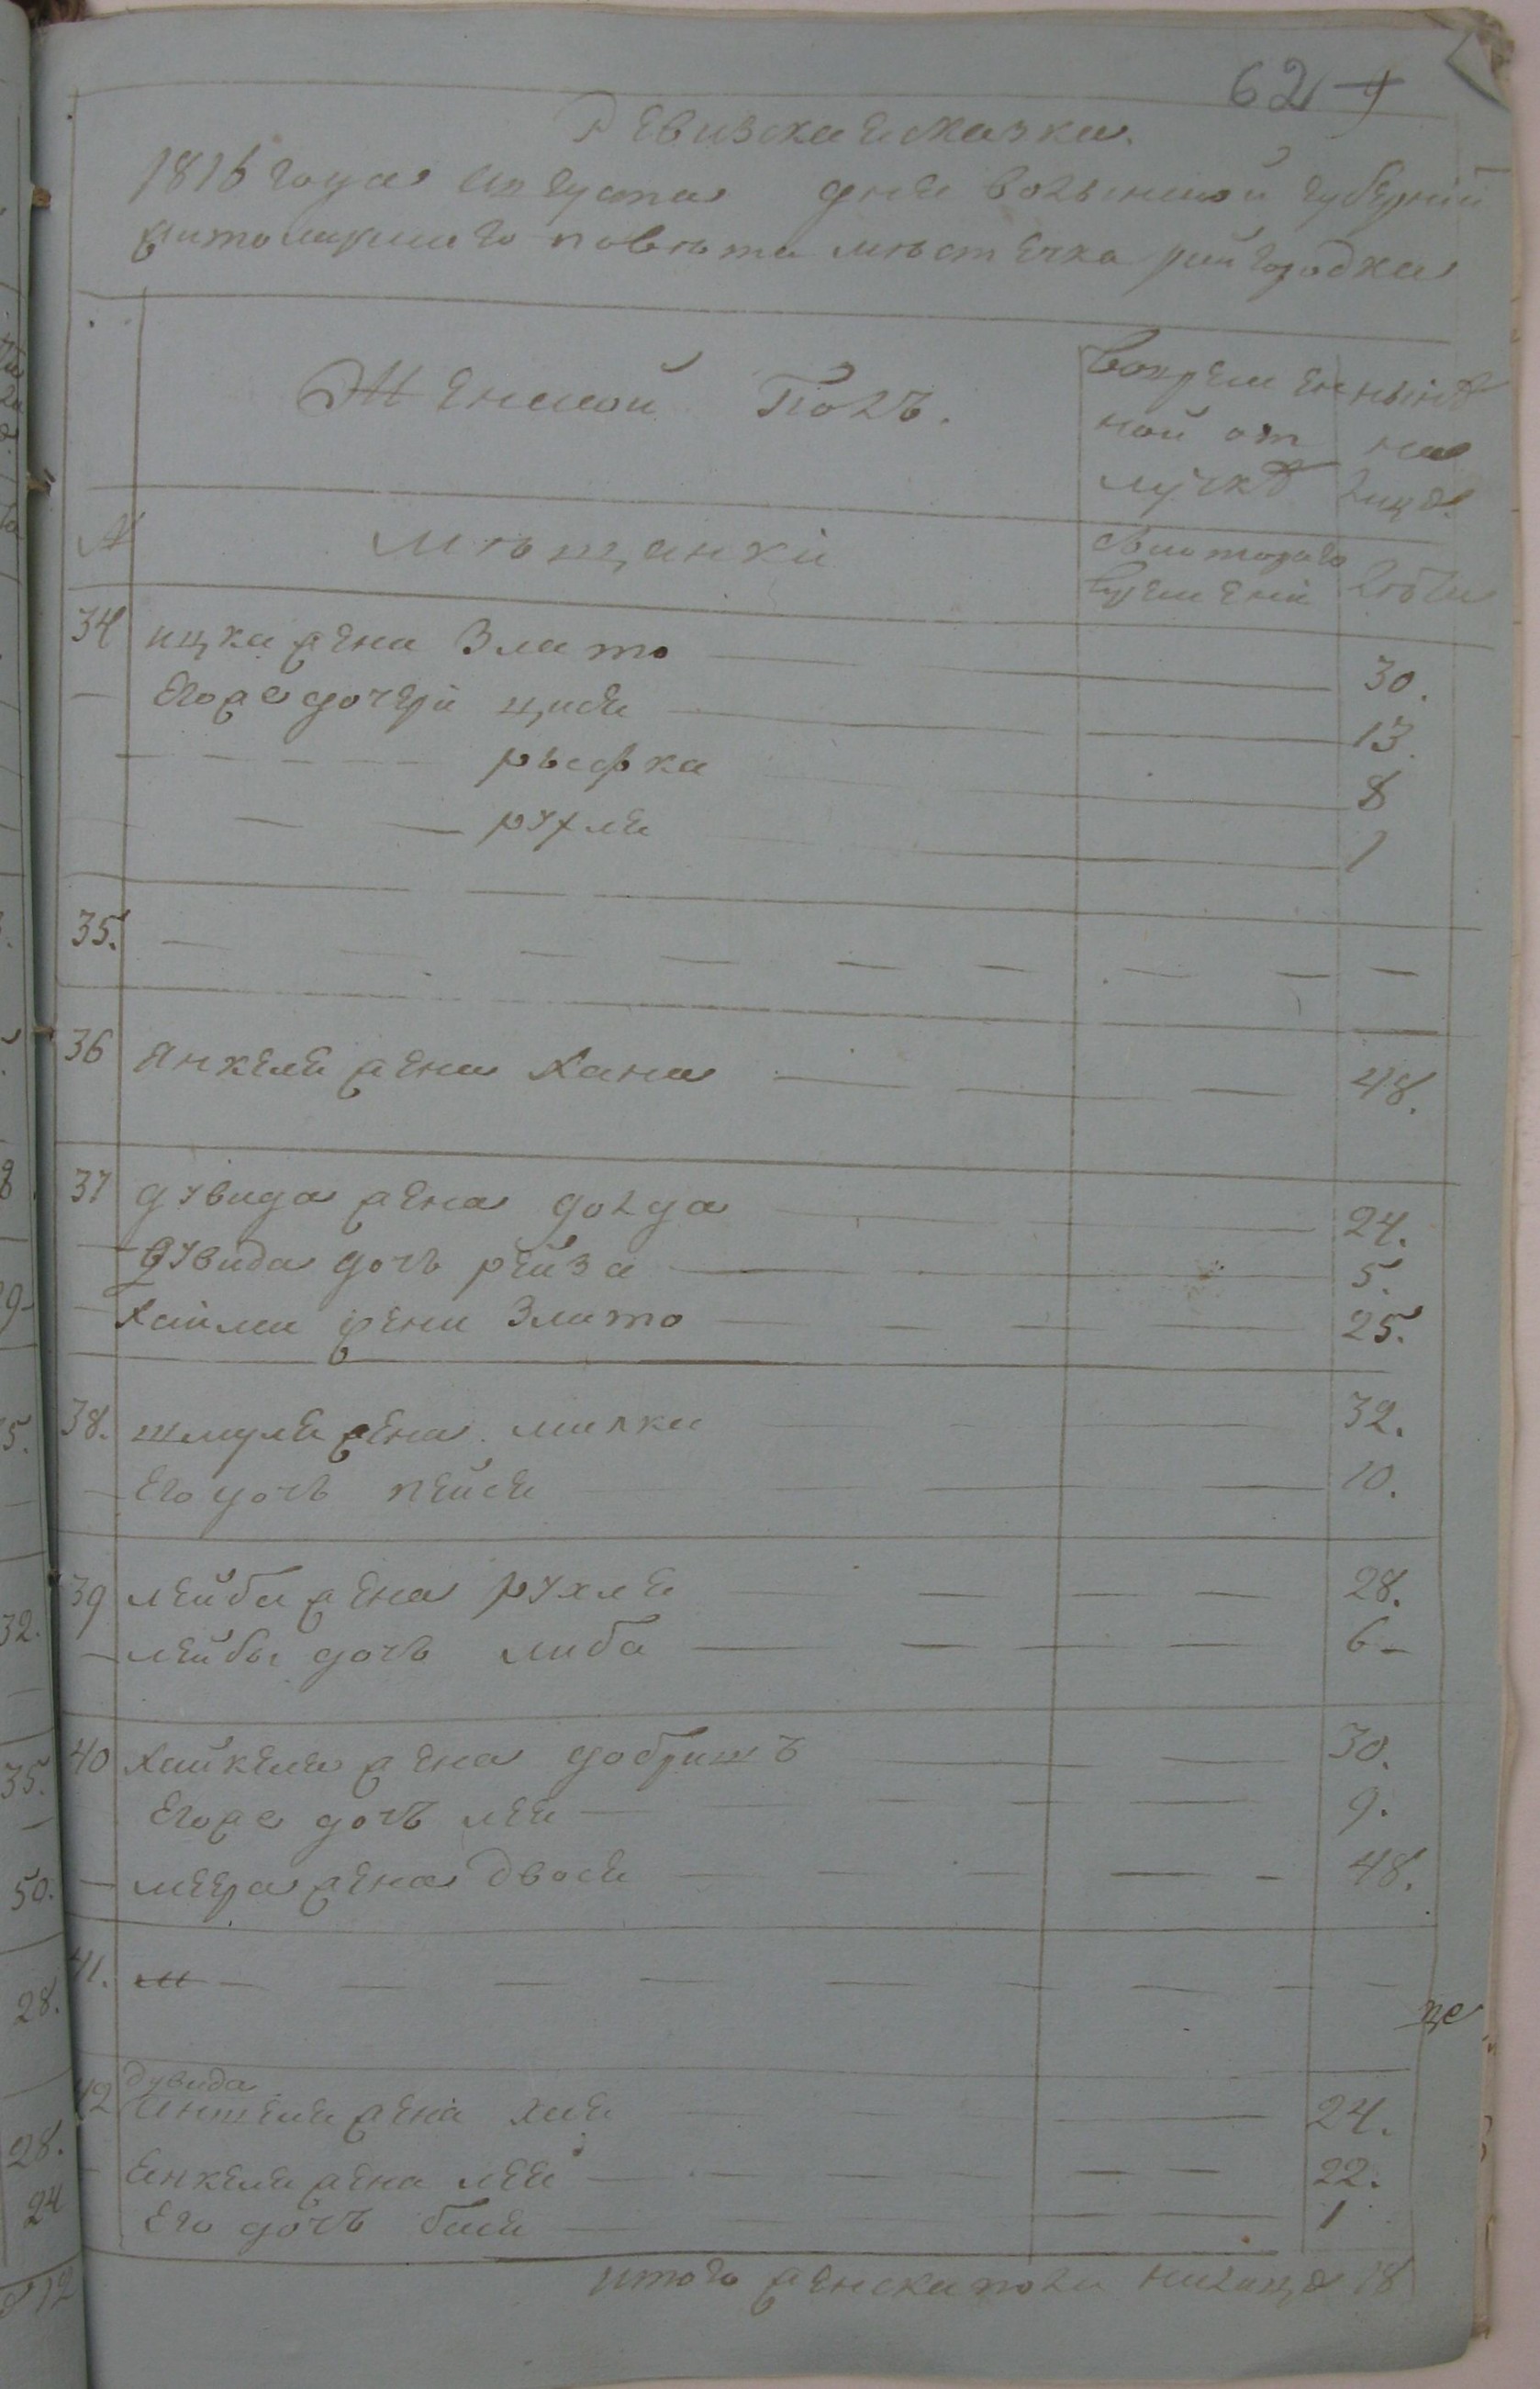 62
Ревизская сказка.
1816 года августа дня волынской губернии
житомирского повѣта мѣстечка райгородка
Женской Полъ.
Во временной отлучкѣ
нынѣ на лицо.
№ мѣщанкі
с которого времени
лѣта
34 ицка жена Злата 30.
Его же дочери цися 13.
рысфка 8
рухля 1
35. — — — — — — — — —
36 янкеля жена хана 48.
37 дувида жена долда 24.
— дувида дочь рейза 5.
— хаима жена Злата 25.
38. шмуля жена милка 32.
— Его дочь пейся 10.
39 лейбы жена рухля 28.
— лейбы дочь либа 6 –
40 хайкеля жена добришъ 30.
Его же дочь лея 9.
— меера жена двося 48.
41. — — — — — — — —
дувида
42 жена хая 24.
— янкеля жена лея 22.
Его дочь бася 1
итого женска пола налицо 18